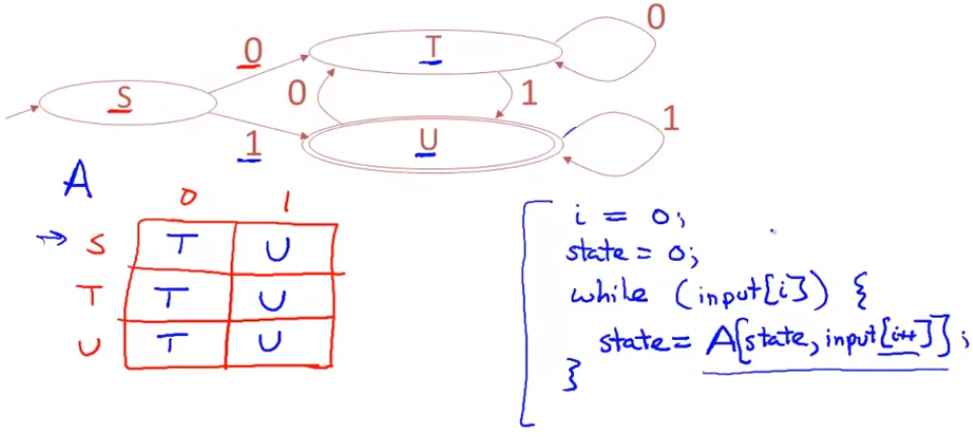 0
T
0
S
0
1
1
U
1
A
0 1
S T U
T T U
U T U
i = 0;
state = 0;
while (input[i]) {
state = A[state, input[i++]];
}